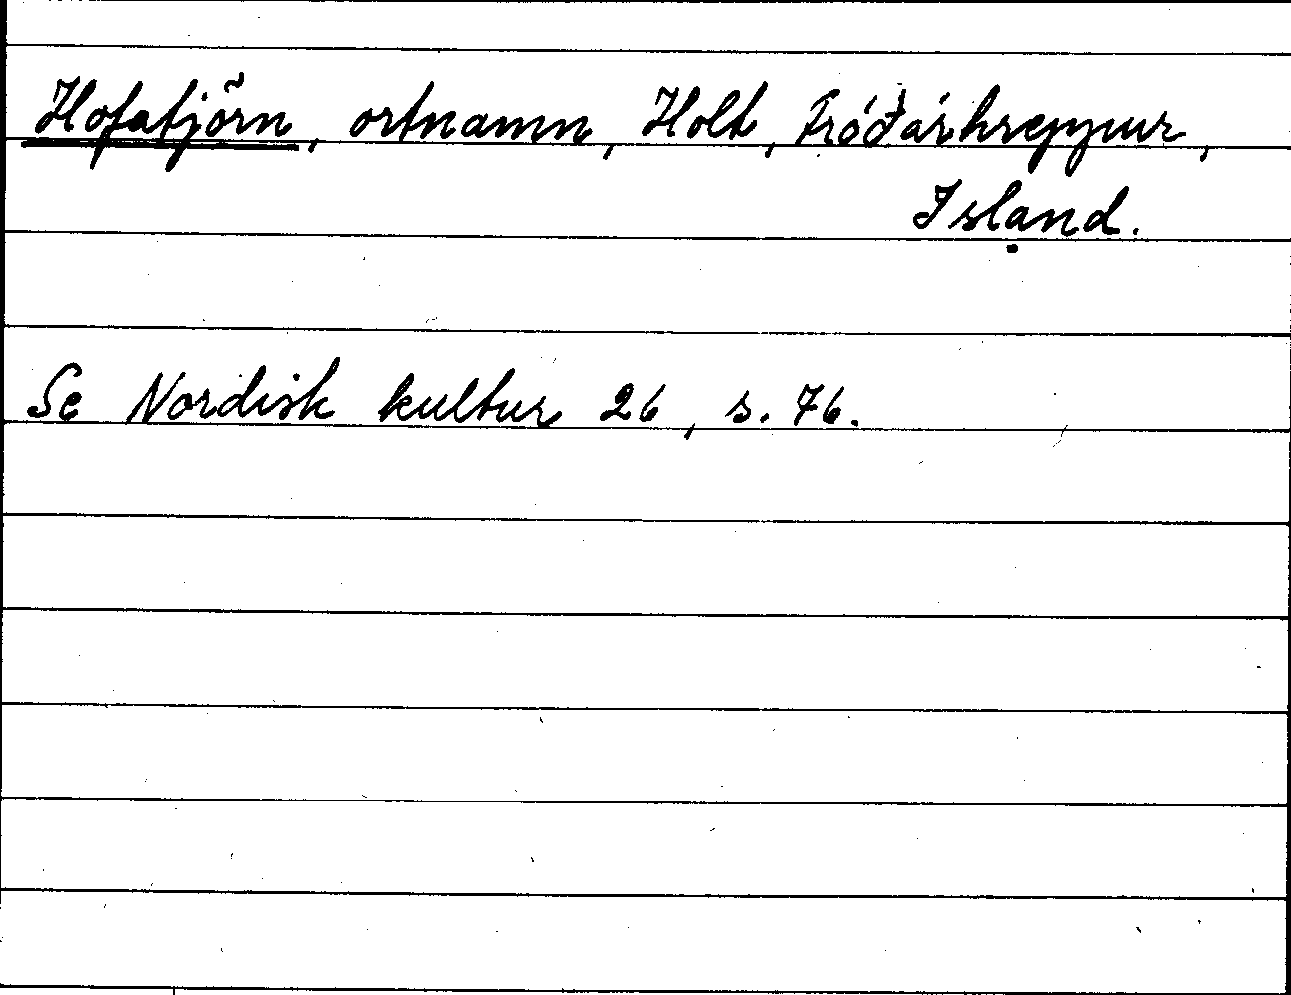 Hofatjörn, ortnamn, Holt, Fróðárhreppur,
Island.
Se Nordisk kultur 26, s. 76.